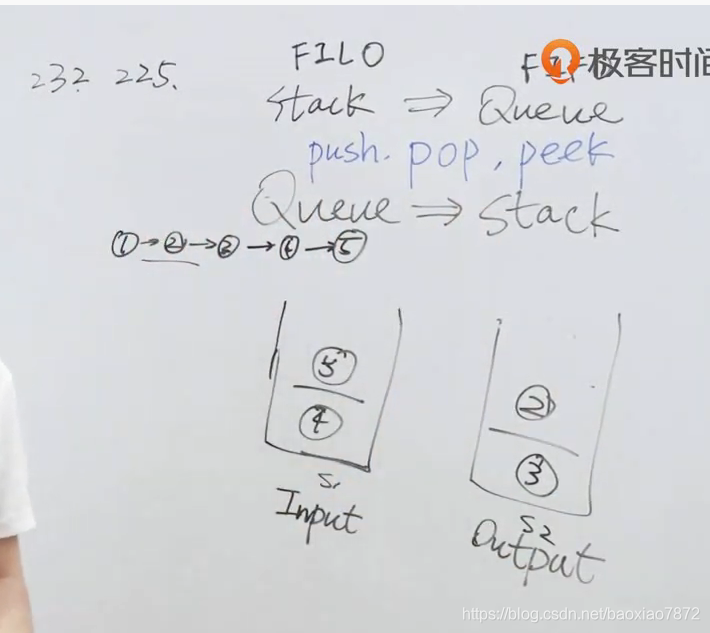 232 225.
FILO
FIFO
极客时间
Stack ⇒ Queue
push. pop, peek
Queue ⇒ Stack
① → ② → ③ → ④ → ⑤
⑤ ②
④ ③
S1 S2
Input Output
https://blog.csdn.net/baoxiao7872